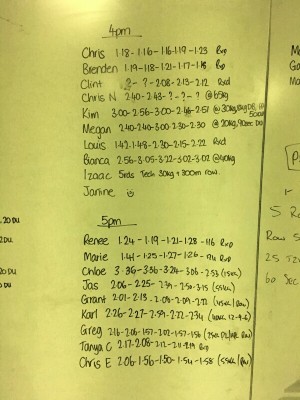 4pm
Chris 1:18-1:16-1:16-1:19-1:23 Rxp
Brenden 1:19-1:18-1:21-1:17-1:18 Rxp
Clint ?-?-2:08-2:13-2:12 Rxd
Chris N 2:40-2:43-?-?-? @65kg
Kim 3:00-2:56-3:00-2:46-2:57
Megan 2:40-2:40-3:00-2:30-2:30 @20kg,
Louis 1:42-1:48-2:30-2:15-2:22 Rxd
Bianca 2:56-3:05-3:22-3:02-3:02 @40kg
Izaac 5rds Tech 30kg + 300m row.
Janine is
5pm
Renee 1:24-1:19-1:21-1:28-1:16 Rxp
Marie 1:41-1:25-1:27-1:26- Rxp
Chloe 3:36-3:36-3:24-3:06-2:53 (15kg)
Jas 2:06-2:25-2:39-2:50-3:15 (55kg)
Grant 2:01-2:13-2:09-2:09-2:02 /Row)
Karl 2:26-2:27-2:59-2:22-2:34
Greg 2:16-2:06-1:57-2:02-1:57-1:56 Row)
Tanya C 2:17-2:08-2:12-2:11-2:19 Rxp
Chris E 2:06-1:56-1:50-1:54-1:58 (55kg/Row)
20 DU.
DU.
DU
DU.
5 R
Row 5
25 T
60 Sec